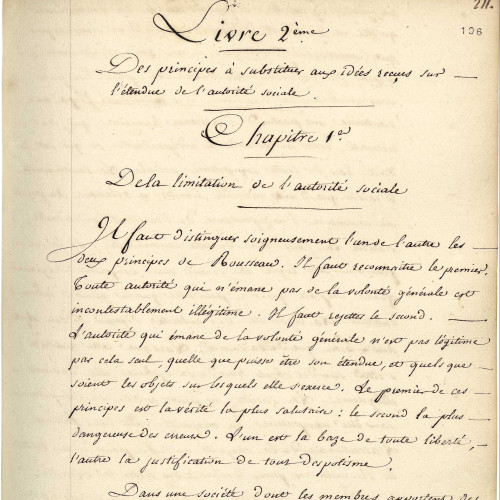 211.
106
Livre 2ème
Des principes à substituer aux idées reçues sur
l'étendue de l'autorité sociale.
Chapitre 1er
De la limitation de l'autorité sociale
Il faut distinguer soigneusement l'un de l'autre les
deux principes de Rousseau. Il faut reconnaitre le premier.
Toute autorité qui n'émane pas de la volonté générale est
incontestablement illégitime. Il faut rejetter le second.
L'autorité qui émane de la volonté générale n'est pas légitime
par cela seul, quelle que puisse être son étendue, et quels que
soient les objets sur lesquels elle s'exerce. Le premier de ces
principes est la vérité la plus salutaire : le second la plus
dangereuse des erreurs. L'un est la baze de toute liberté,
l'autre la justification de tout despotisme.
Dans une société dont les membres apportent des